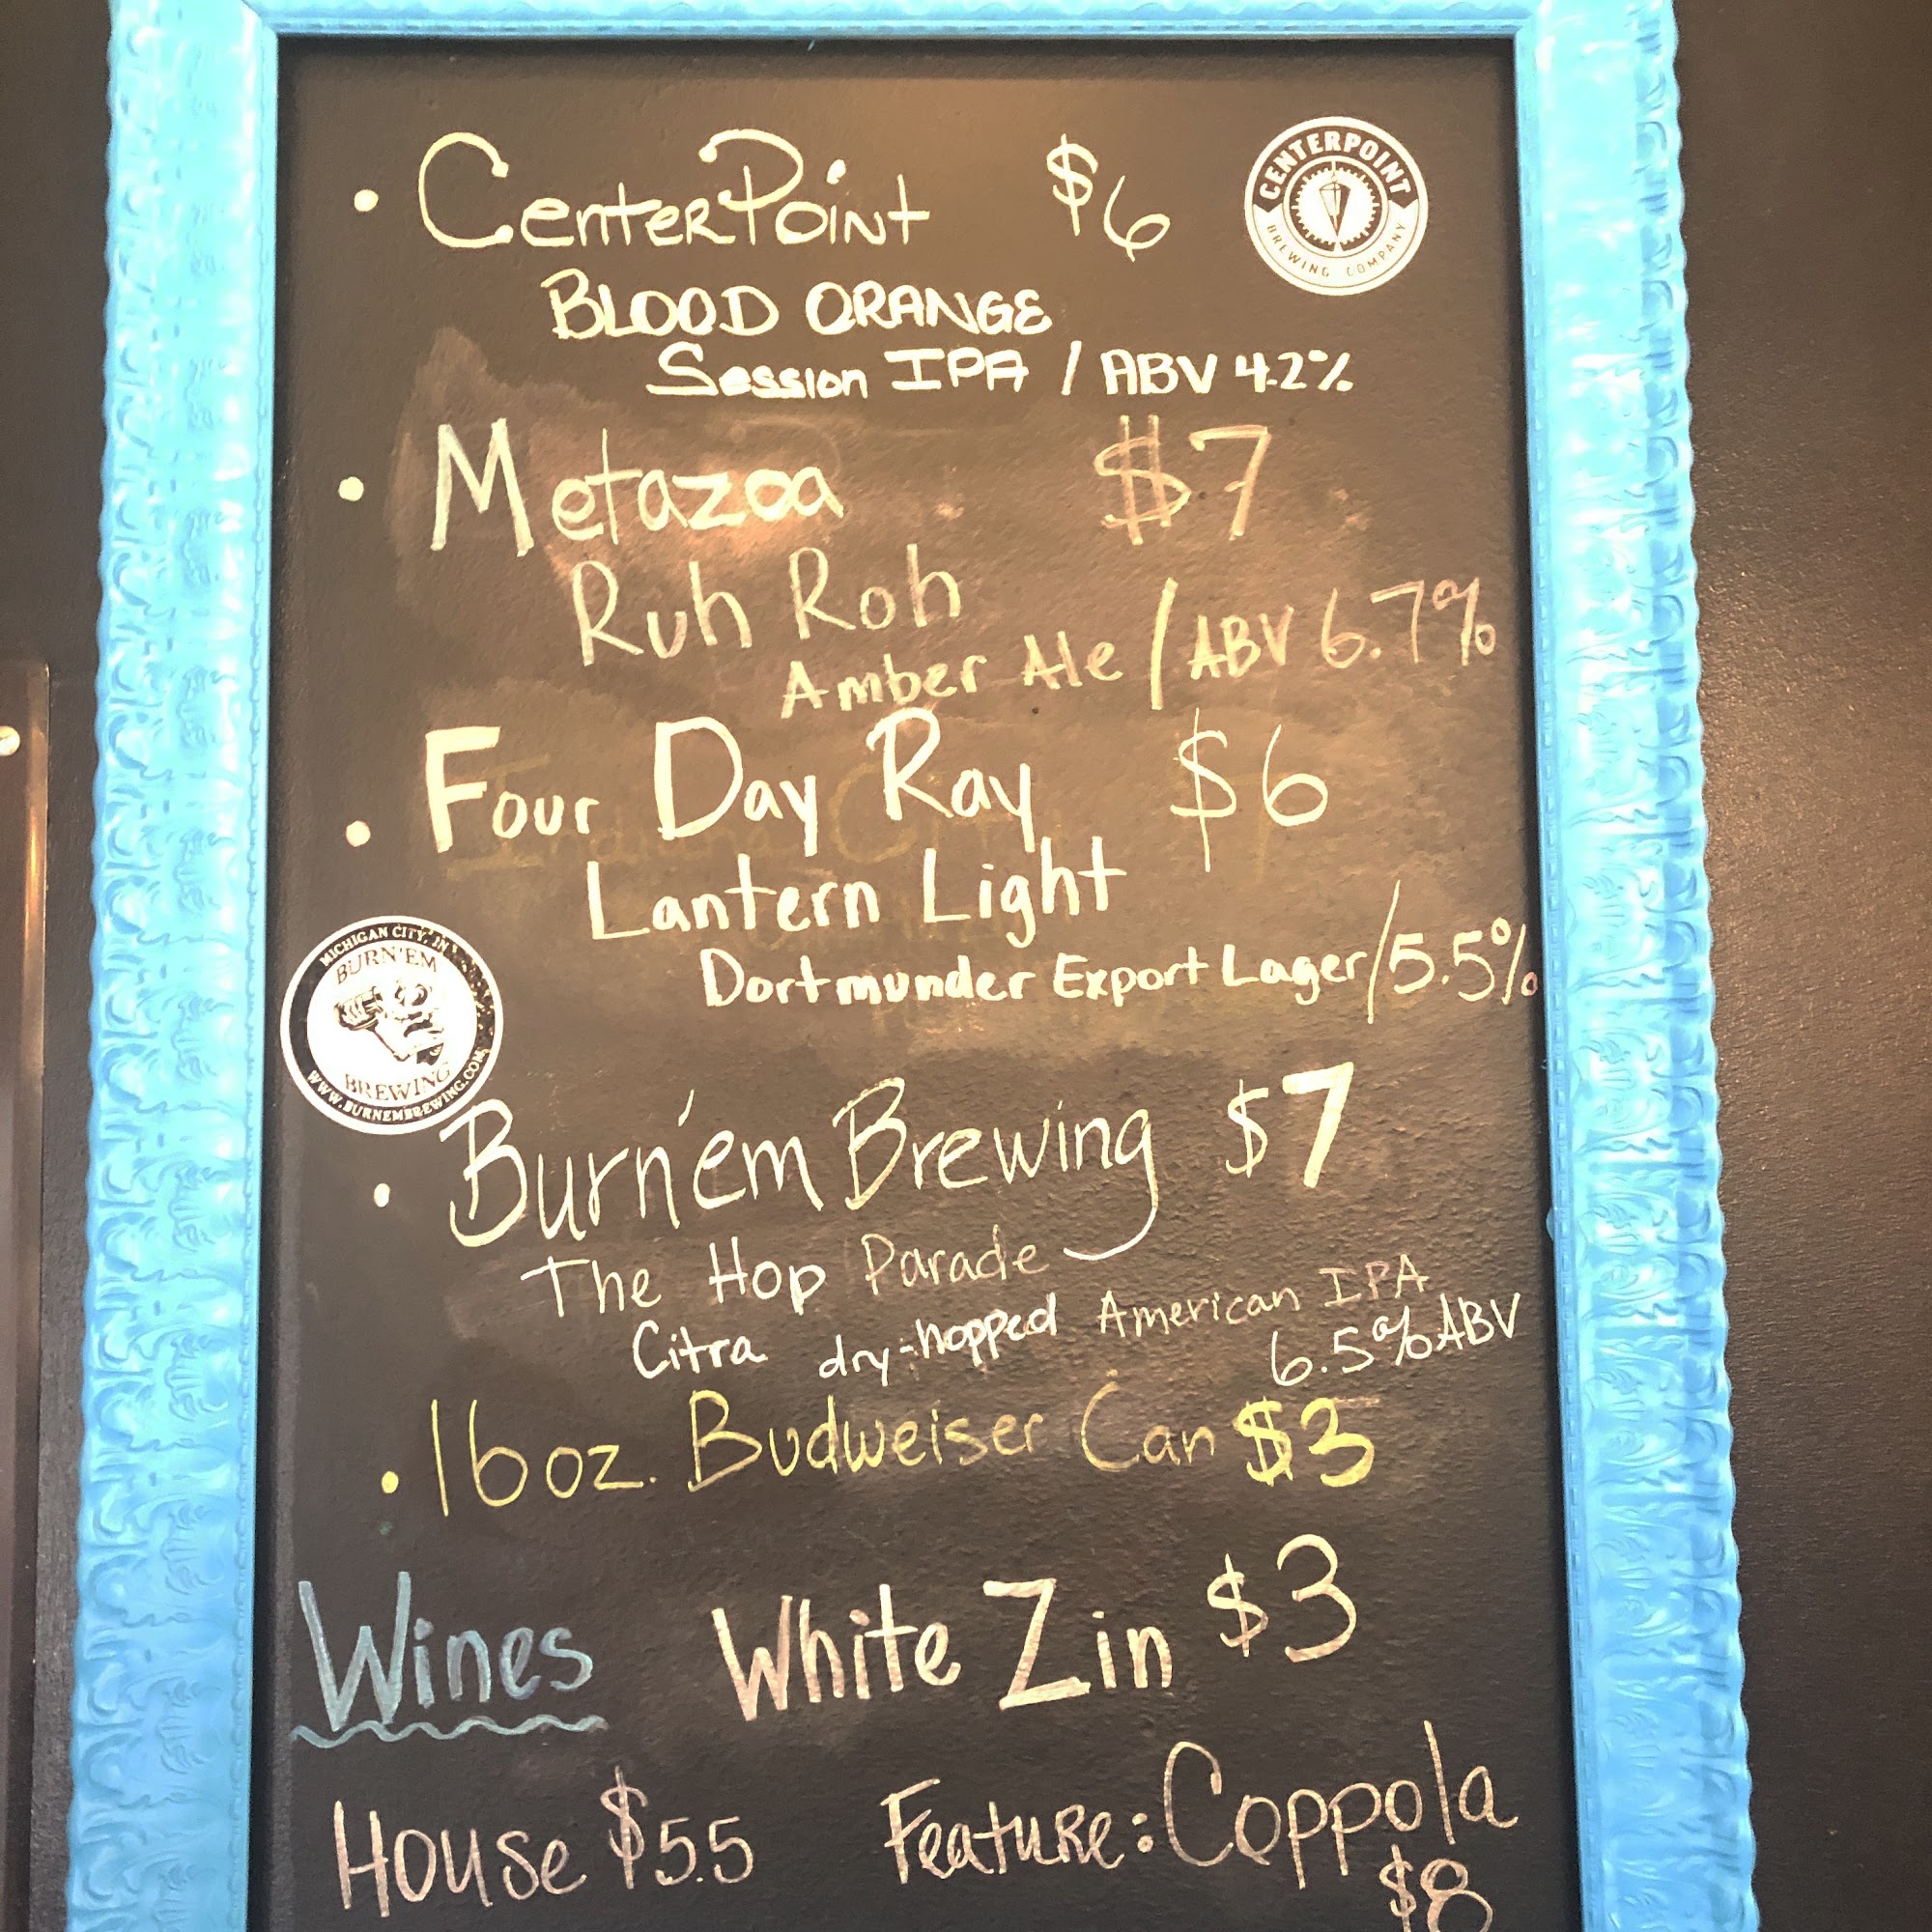 • CenterPoint $6
CENTERPOINT
BREWING COMPANY
BLOOD ORANGE
Session IPA / ABV 4.2%
• Metazoa $7
Ruh Roh
Amber Ale / ABV 6.7%
• Four Day Ray $6
Lantern Light
Dortmunder Export Lager / 5.5%
MICHIGAN CITY, IN
BURN'EM
BREWING
WWW.BURNEMBREWING.COM
• Burn'em Brewing $7
The Hop Parade
Citra dry-hopped American IPA
6.5% ABV
• 16oz. Budweiser Can $3
Wines White Zin $3
House $5.5 Feature: Coppola
$8